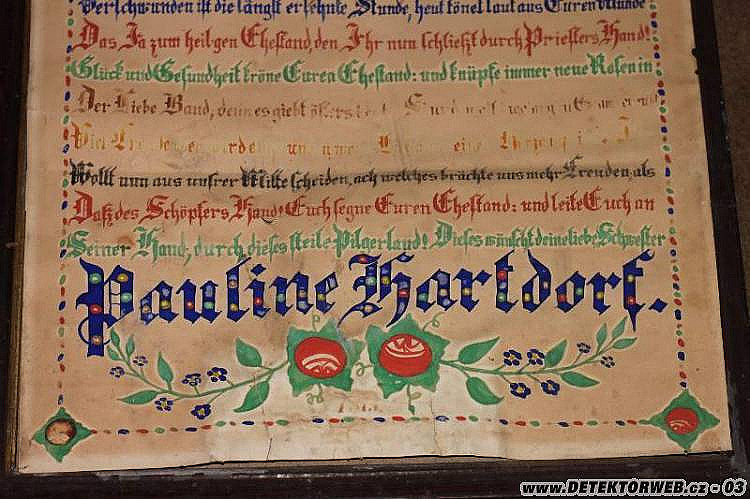 Verschwunden ist die längst ersehnte Stunde, heut tönet laut aus Eurem Munde
Das Ja zum heilgen Ehestand, den Ihr nun schließt durch Priesters Hand!
Glück und Gesundheit kröne Euren Ehestand: und knüpfe immer neue Rosen in
Der Liebe Band, denn es giebt
Viel
Wollt nun aus unsrer Mitte scheiden, ach welches brächte uns mehr Freuden, als
Daß des Schöpfers Hand! Euch segne Euren Ehestand: und leite Euch an
Seiner Hand, durch dieses steile Pilgerland! Dieses wünscht deine liebe Schwester
Pauline Hartdorf.
www.DETEKTORWEB.cz - 03